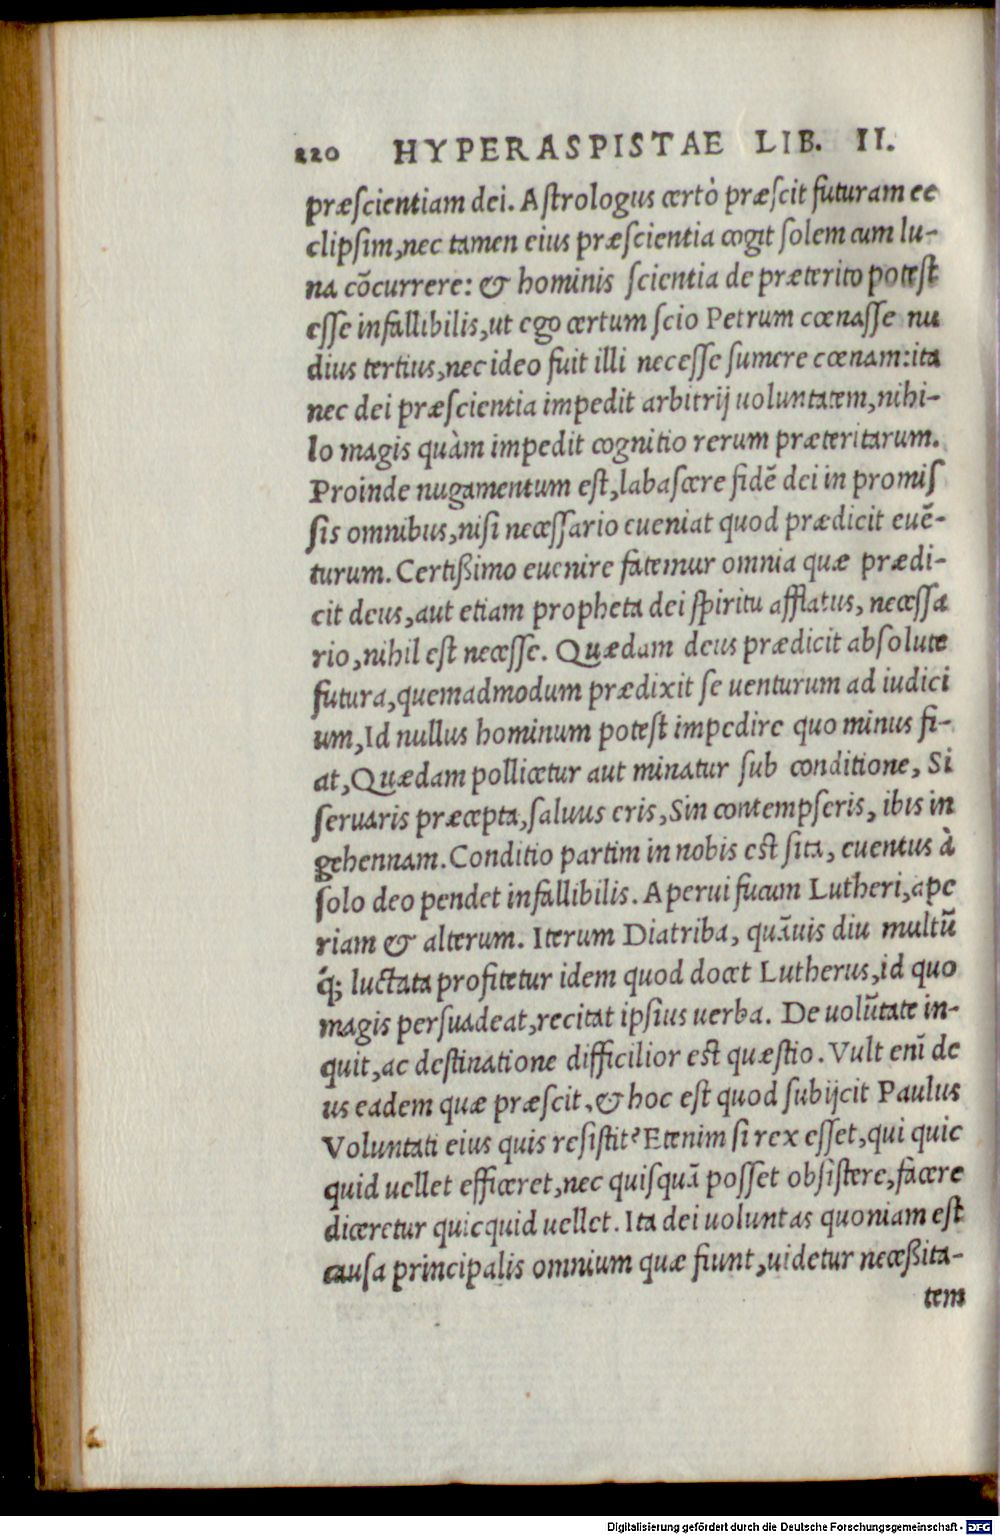 220 HYPERASPISTAE LIB. II.
præscientiam dei. Astrologus certò præscit futuram ec
clipsim, nec tamen eius præscientia cogit solem cum lu-
na cōcurrere: & hominis scientia de præterito potest
esse infallibilis, ut ego certum scio Petrum cœnasse nu
dius tertius, nec ideo fuit illi necesse sumere cœnam: ita
nec dei præscientia impedit arbitrij uoluntatem, nihi-
lo magis quàm impedit cognitio rerum præteritarum.
Proinde nugamentum est, labascere fidē dei in promis
sis omnibus, nisi necessario eueniat quod prædicit euē-
turum. Certißimo euenire fatemur omnia quæ prædi-
cit deus, aut etiam propheta dei spiritu afflatus, necessa
rio, nihil est necesse. Quædam deus prædicit absolute
futura, quemadmodum prædixit se uenturum ad iudici
um, Id nullus hominum potest impedire quo minus fi-
at, Quædam pollicetur aut minatur sub conditione, Si
seruaris præcepta, saluus eris, Sin contempseris, ibis in
gehennam. Conditio partim in nobis est sita, euentus à
solo deo pendet infallibilis. Aperui fucum Lutheri, ape
riam & alterum. Iterum Diatriba, quāuis diu multū
q́; luctata profitetur idem quod docet Lutherus, id quo
magis persuadeat, recitat ipsius uerba. De uolūtate in-
quit, ac destinatione difficilior est quæstio. Vult enī de
us eadem quæ præscit, & hoc est quod subijcit Paulus
Voluntati eius quis resistit? Etenim si rex esset, qui quic
quid uellet efficeret, nec quisquā posset obsistere, facere
diceretur quicquid uellet. Ita dei uoluntas quoniam est
causa principalis omnium quæ fiunt, uidetur neceßita-
tem
Digitalisierung gefördert durch die Deutsche Forschungsgemeinschaft - DFG